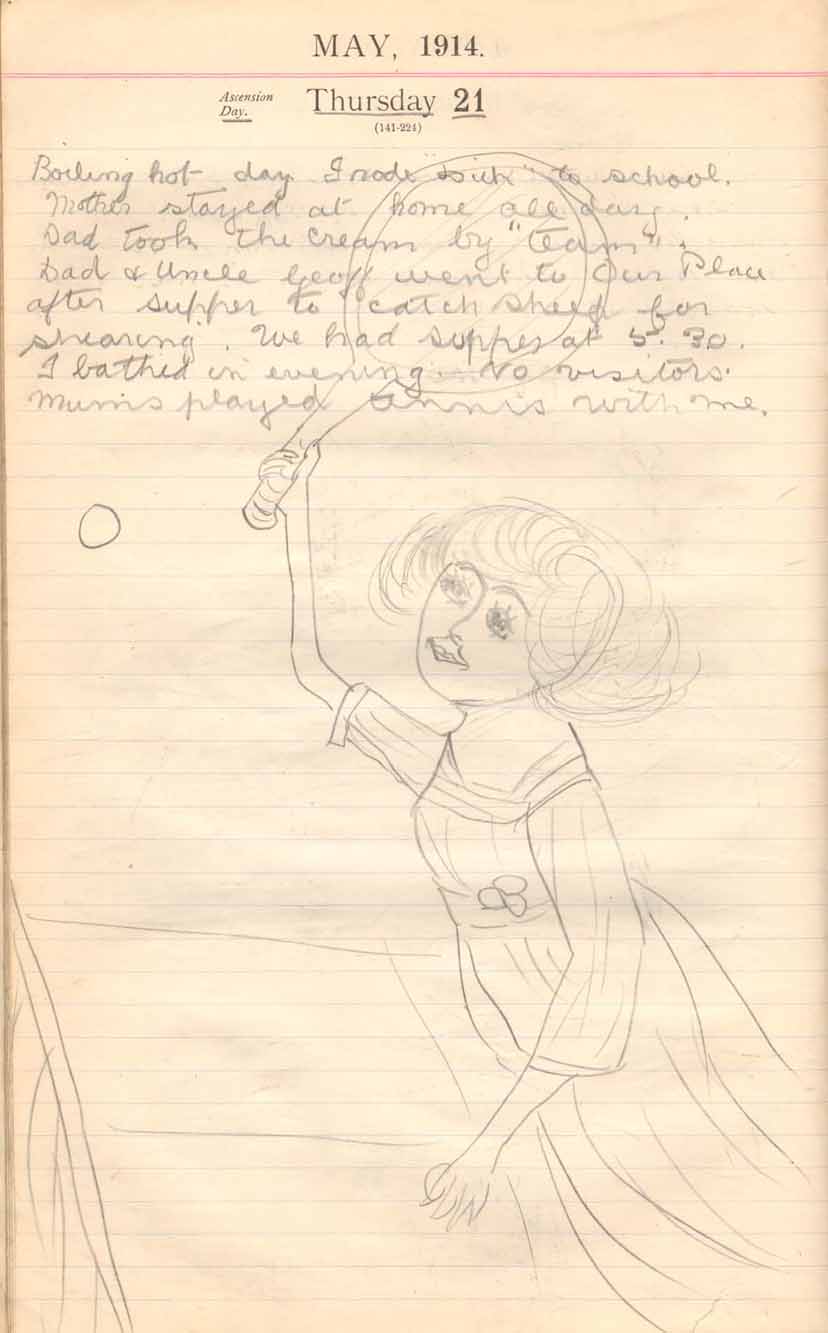 MAY, 1914.
Ascension
Day.
Thursday 21
(141-224)
Boiling hot day. I rode "Dick" to school.
Mother stayed at home all day.
Dad took the cream by "team".
Dad & Uncle Geoff went to Our Place
after supper to "catch sheep for
shearing". We had supper at 5.30.
I bathed in evening. No visitors.
Mums played tennis with me.